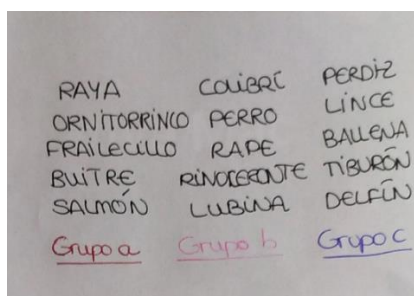 RAYA
ORNITORRINCO
FRAILECILLO
BUITRE
SALMÓN
Grupo a
COLIBRÍ
PERRO
RAPE
RINOCERONTE
LUBINA
Grupo b
PERDIZ
LINCE
BALLENA
TIBURÓN
DELFÍN
Grupo c